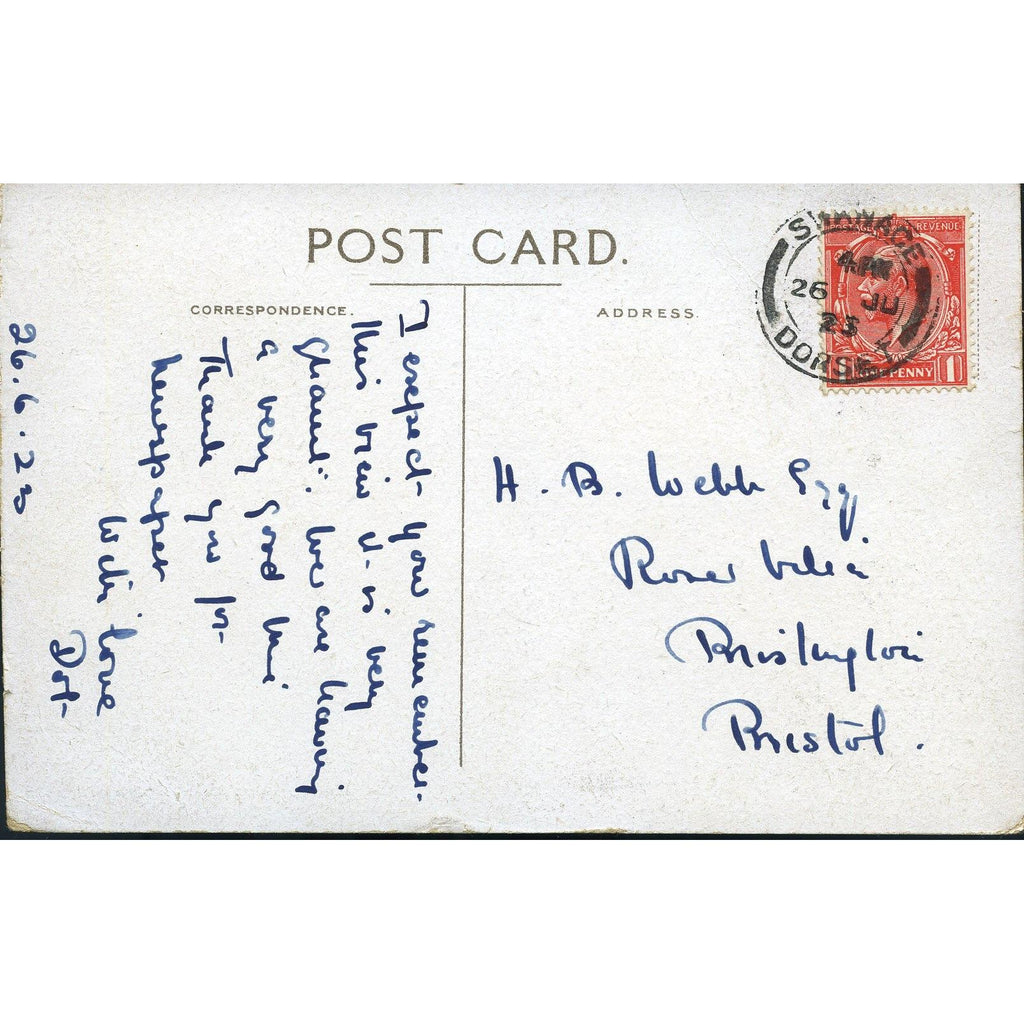 POST CARD.
CORRESPONDENCE.
ADDRESS.
SWANAGE
4 PM
26 JU
23
DORSE
REVENUE
PENNY 1
I expect you remember
this view it is very
We are having
a very good time
Thank you for
newspaper
With love
Dot
26.6.23
H. B. Webb Esq
Rose Villa
Brislington
Bristol.